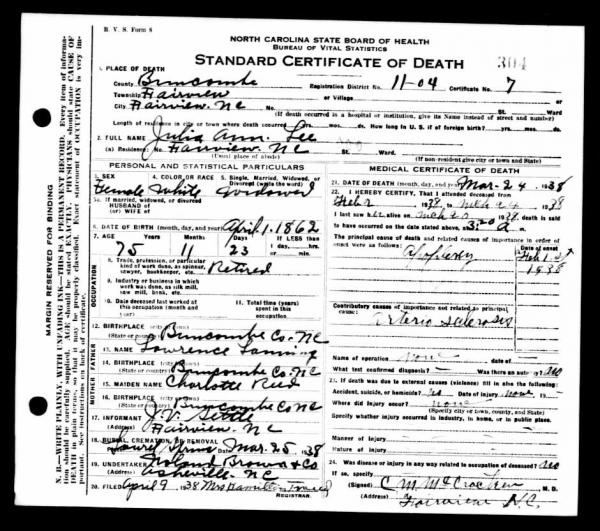 B. V. S. Form 8
NORTH CAROLINA STATE BOARD OF HEALTH
BUREAU OF VITAL STATISTICS
STANDARD CERTIFICATE OF DEATH 304
1. PLACE OF DEATH
County Buncombe Registration District No. 11-04 Certificate No. 7
Township Fairview or Village
City Fairview NC No. St. Ward
(If death occurred in a hospital or institution, give its Name instead of street and number)
Length of residence in city or town where death occurred yrs. mos. ds. How long in U. S. if of foreign birth? yrs. mos. ds.
2. FULL NAME Julia Ann Lee
(a) Residence: No. Fairview NC St. Ward.
(Usual place of abode) (If non-resident give city or town and State)
PERSONAL AND STATISTICAL PARTICULARS
3. SEX 4. COLOR OR RACE 5. Single, Married, Widowed, or Divorced (write the word)
Female White widowed
5a. If married, widowed, or divorced
HUSBAND of
(or) WIFE of
6. DATE OF BIRTH (month, day, and year) April 1-1862
7. AGE Years Months Days If LESS than
1 day, hrs.
or min.
75 11 23
OCCUPATION
8. Trade, profession, or particular
kind of work done, as spinner,
sawyer, bookkeeper, etc. Retired
9. Industry or business in which
work was done, as silk mill,
saw mill, bank, etc.
10. Date deceased last worked at
this occupation (month and
year)
11. Total time (years)
spent in this
occupation
12. BIRTHPLACE
(State or country) Buncombe Co. NC
FATHER
13. NAME Lawrence Lanning
14. BIRTHPLACE
(State or country) Buncombe Co. NC
MOTHER
15. MAIDEN NAME Charlotte Reed
16. BIRTHPLACE
(State or country) Buncombe Co NC
17. INFORMANT J. V.
(Address) Fairview NC
18. BURIAL, CREMATION, OR REMOVAL
Place Date Mar. 25 1938
19. UNDERTAKER Brown & Co
(Address) Asheville NC
20. FILED April 9 1938 Mrs Hamilton
REGISTRAR.
MEDICAL CERTIFICATE OF DEATH
21. DATE OF DEATH (month, day, and year) Mar-24 1938
22. I HEREBY CERTIFY, That I attended deceased from
1938, to 1938
I last saw alive on 1938 death is said
to have occurred on the date stated above,
The principal cause of death and related causes of importance in order of
onset were as follows:
Apoplexy Feb 1st
Contributory causes of importance not related to principal cause:
Arterio sclerosis
Name of operation none date of
What test confirmed diagnosis? Was there an autopsy? no
23. If death was due to external causes (violence) fill in also the following:
Accident, suicide, or homicide? no Date of injury none 19
Where did injury occur? none
(Specify city or town, county, and State)
Specify whether injury occurred in industry, in home, or in public place.
Manner of injury
Nature of injury
24. Was disease or injury in any way related to occupation of deceased? no
If so, specify
(Signed) C M McCracken M.D.
(Address) Fairview N.C.
MARGIN RESERVED FOR BINDING
N. B.—WRITE PLAINLY, WITH UNFADING INK—THIS IS A PERMANENT RECORD. Every item of information should be carefully supplied. AGE should be stated EXACTLY. PHYSICIANS should state CAUSE OF DEATH in plain terms, so that it may be properly classified. Exact statement of OCCUPATION is very important. See instructions on back of certificate.